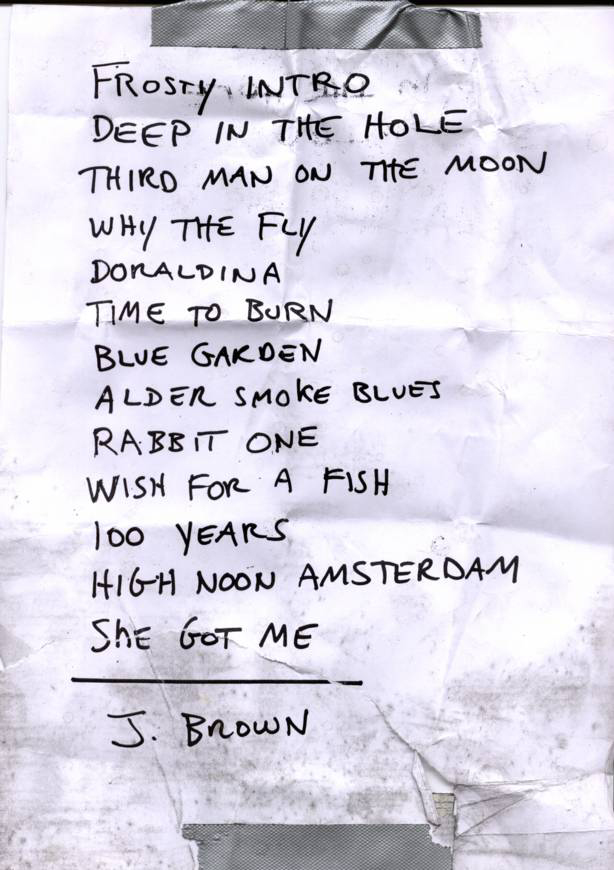 FROSTY INTRO
DEEP IN THE HOLE
THIRD MAN ON THE MOON
WHY THE FLY
DORALDINA
TIME TO BURN
BLUE GARDEN
ALDER SMOKE BLUES
RABBIT ONE
WISH FOR A FISH
100 YEARS
HIGH NOON AMSTERDAM
SHE GOT ME
J. BROWN